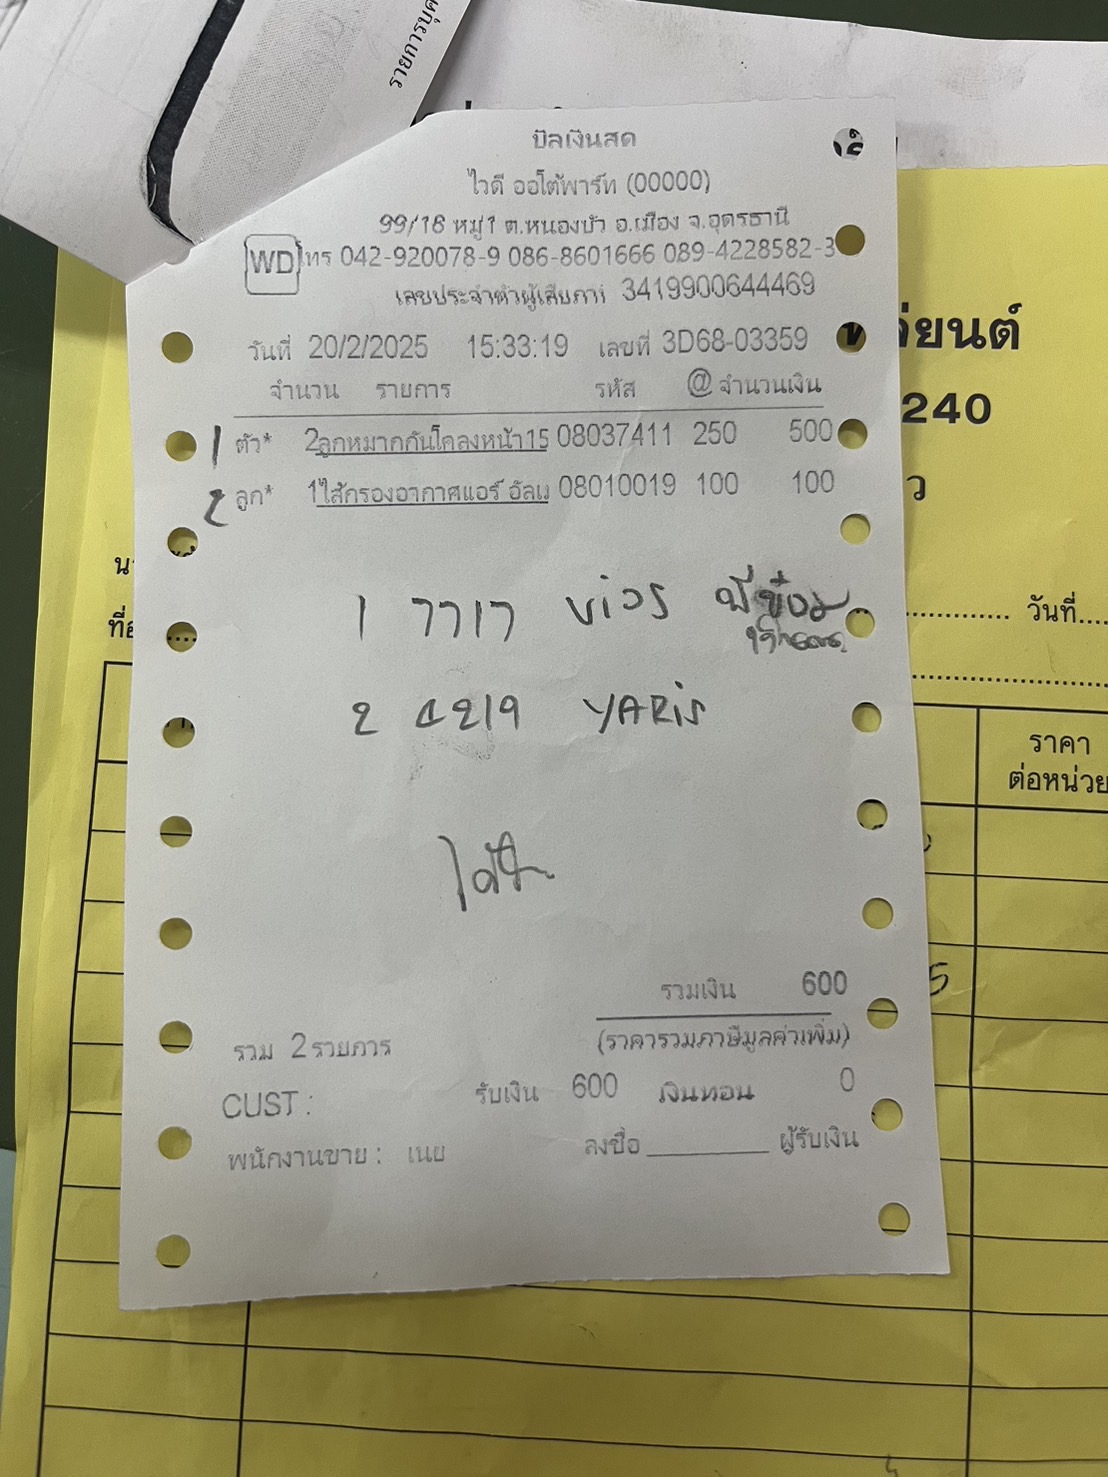 รายการบุค
บิลเงินสด
ไวดี ออโต้พาร์ท (00000)
99/18 หมู่1 ต.หนองบัว อ.เมือง จ.อุดรธานี
WD โทร 042-920078-9 086-8601666 089-4228582-3
เลขประจำตัวผู้เสียภาษี 3419900644469
วันที่ 20/2/2025 15:33:19 เลขที่ 3D68-03359
จำนวน รายการ รหัส @ จำนวนเงิน
1 ตัว* 2ลูกหมากกันโคลงหน้า15 08037411 250 500
2 ลูก* 1ไส้กรองอากาศแอร์ อัลเ 08010019 100 100
1 7717 ViOS
2 4219 YARiS
รวมเงิน 600
(ราคารวมภาษีมูลค่าเพิ่ม)
รวม 2รายการ
รับเงิน 600 เงินทอน 0
CUST :
พนักงานขาย : เนย ลงชื่อ ผู้รับเงิน
ยนต์
240
ว
วันที่
ราคา
ต่อหน่วย